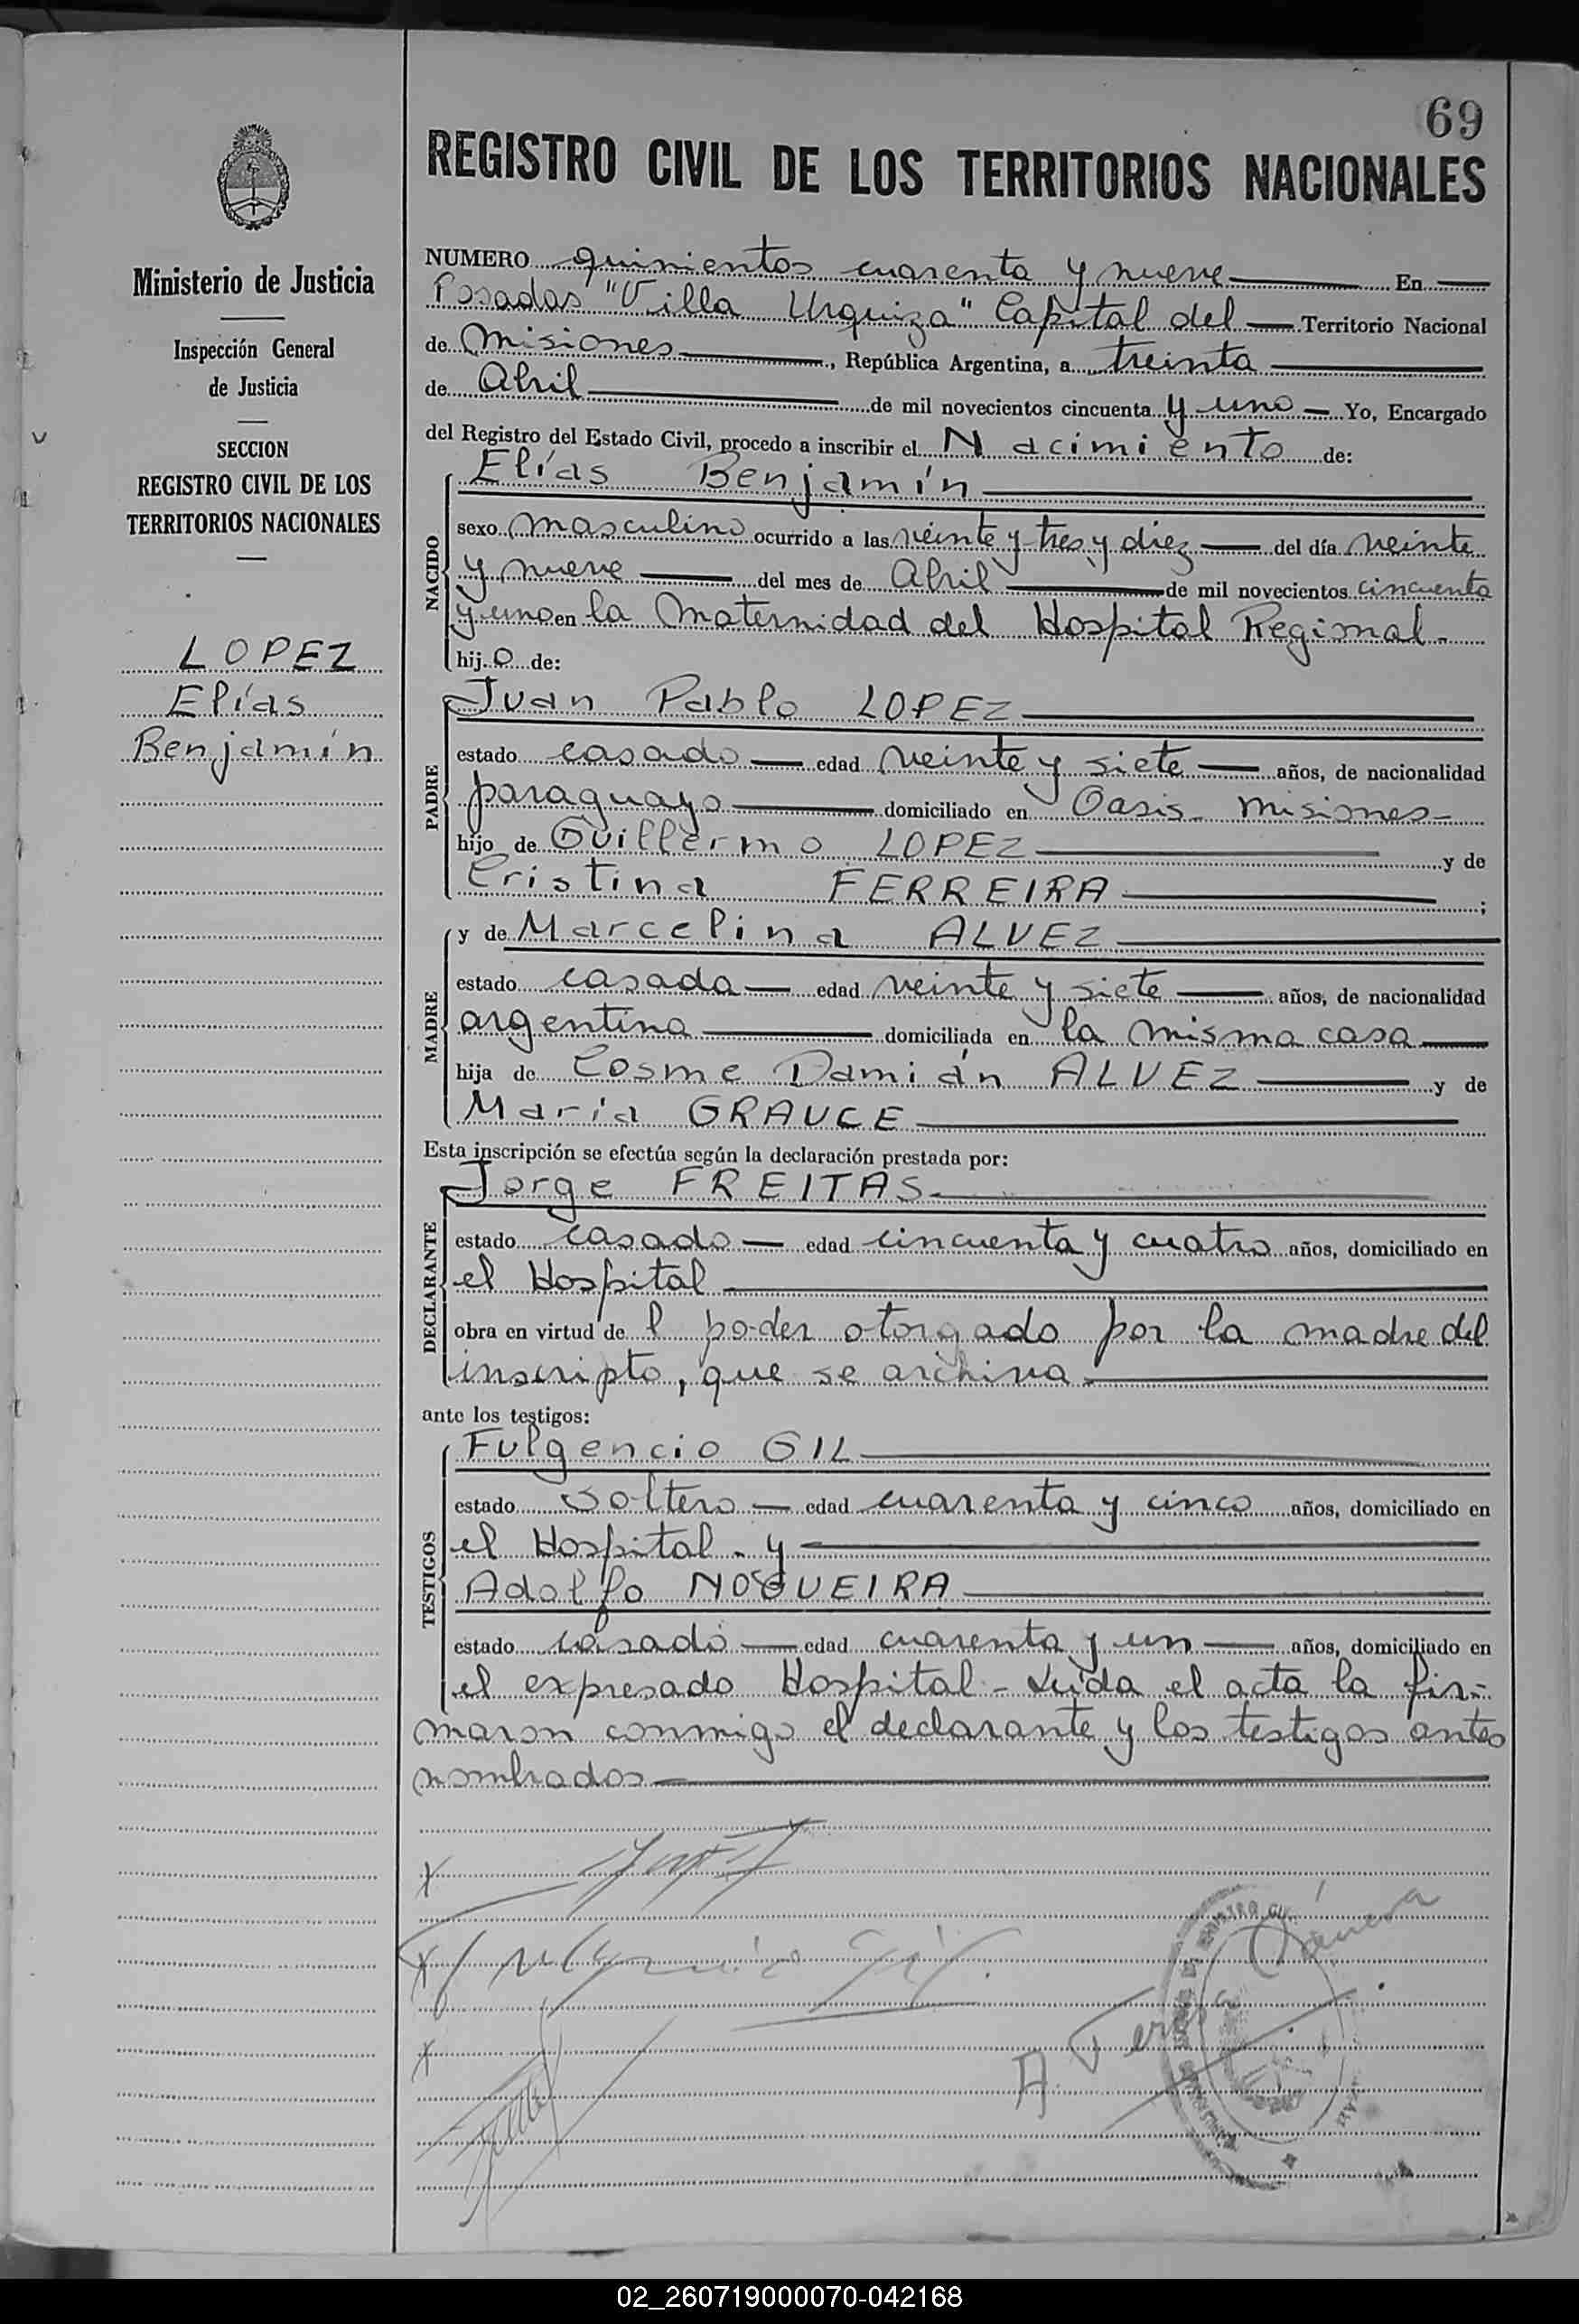 69
REGISTRO CIVIL DE LOS TERRITORIOS NACIONALES
Ministerio de Justicia
Inspección General
de Justicia
SECCION
REGISTRO CIVIL DE LOS
TERRITORIOS NACIONALES
LOPEZ
Elías
Benjamín
NUMERO quinientos cuarenta y nueve En
Posadas "Villa Urquiza" Capital del Territorio Nacional
de Misiones, República Argentina, a treinta
de Abril de mil novecientos cincuenta y uno Yo, Encargado
del Registro del Estado Civil, procedo a inscribir el Nacimiento de:
NACIDO
Elías Benjamín
sexo masculino ocurrido a las veinte y tres y diez del día veinte
y nueve del mes de Abril de mil novecientos cincuenta
y uno en la Maternidad del Hospital Regional.
hijo de:
PADRE
Juan Pablo LOPEZ
estado casado edad veinte y siete años, de nacionalidad
paraguayo domiciliado en Oasis - Misiones -
hijo de Guillermo LOPEZ y de
Cristina FERREIRA ;
MADRE
y de Marcelina ALVEZ
estado casada edad veinte y siete años, de nacionalidad
argentina domiciliada en la misma casa
hija de Cosme Damián ALVEZ y de
María GRAUCE
Esta inscripción se efectúa según la declaración prestada por:
DECLARANTE
Jorge FREITAS.
estado casado edad cincuenta y cuatro años, domiciliado en
el Hospital
obra en virtud del poder otorgado por la madre del
inscripto, que se archiva.
ante los testigos:
TESTIGOS
Fulgencio GIL
estado soltero edad cuarenta y cinco años, domiciliado en
el Hospital. y
Adolfo NOGUEIRA
estado casado edad cuarenta y un años, domiciliado en
el expresado Hospital - Leída el acta la fir-
maron conmigo el declarante y los testigos antes
nombrados
x
x Fulgencio Gil.
x
02_260719000070-042168